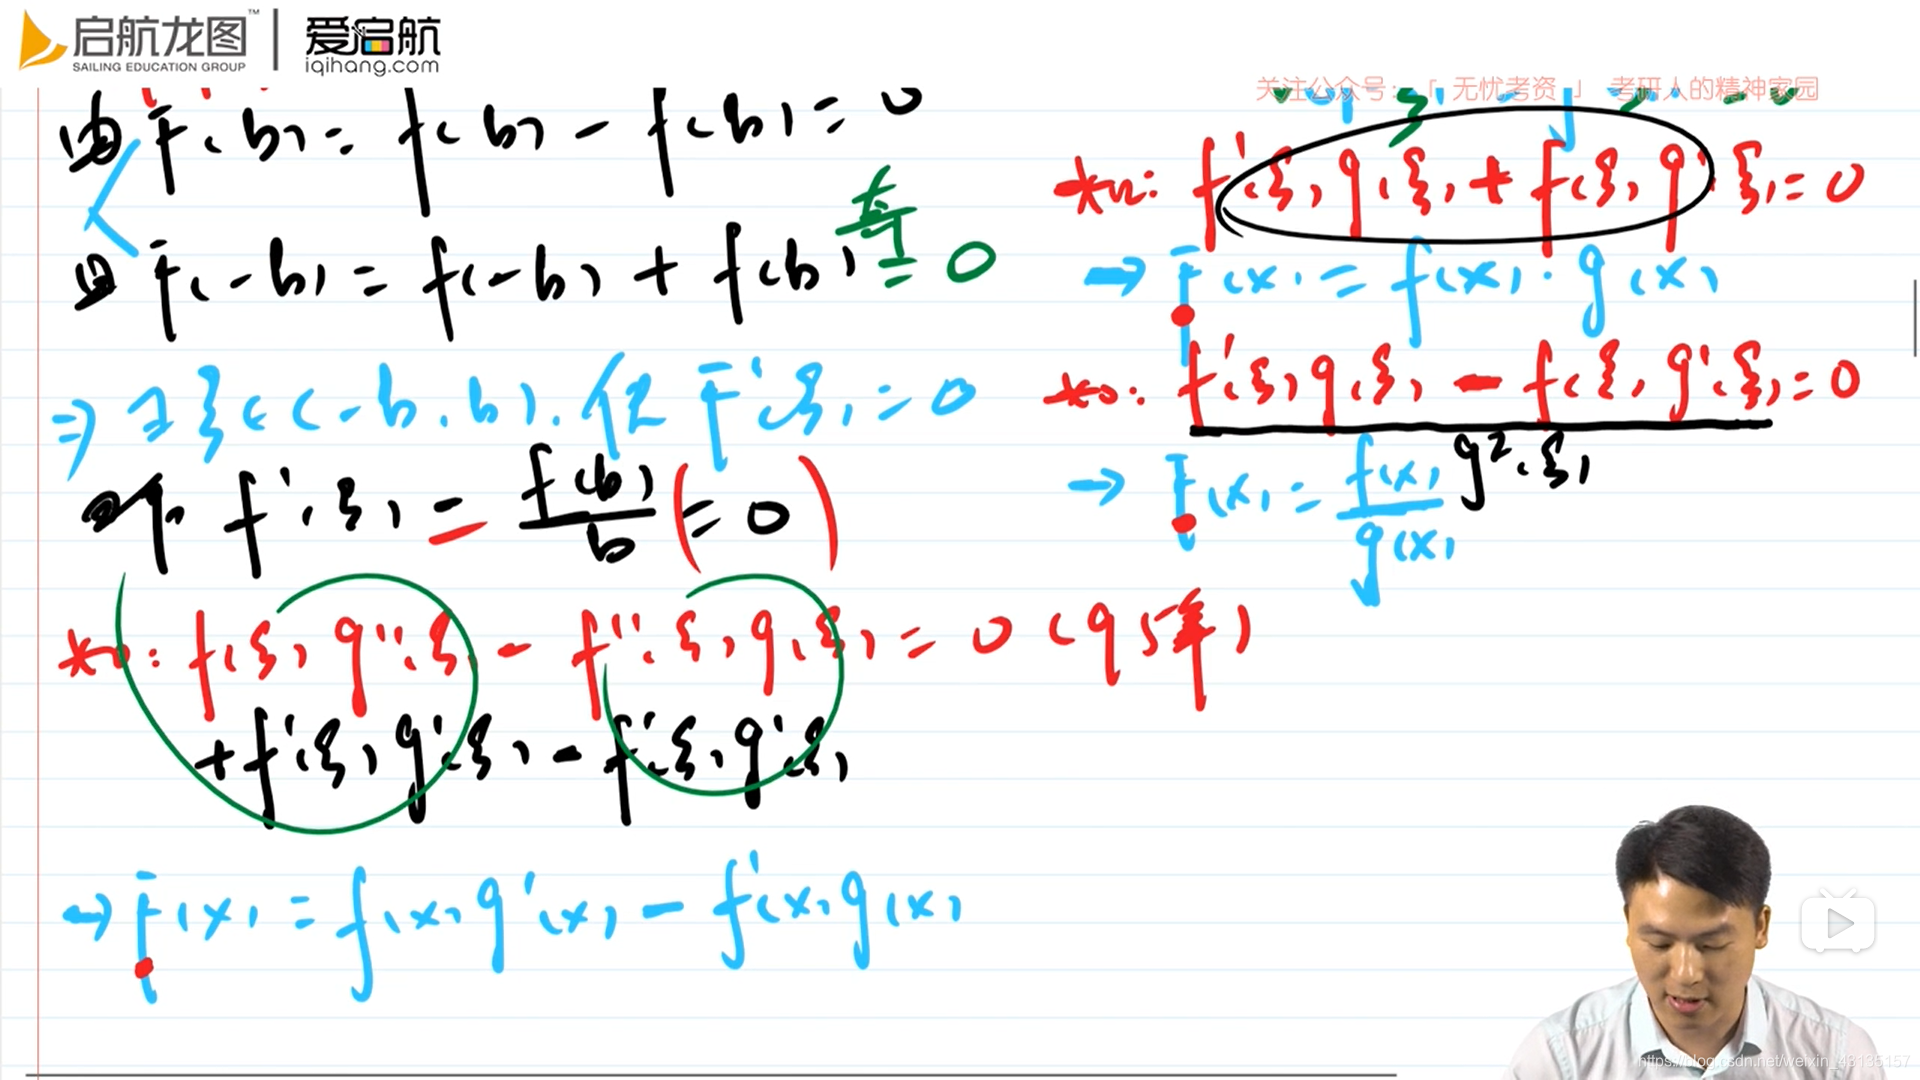 启航龙图™ | 爱启航
SAILING EDUCATION GROUP iqihang.com
关注公众号:「 无忧考资 」 考研人的精神家园
由 F(b) = f(b) - f(b) = 0
且 F(-b) = f(-b) + f(b) 奇= 0
⇒ ∃ξ∈(-b, b), 使 F'(ξ) = 0
即 f'(ξ) - f(b)/b (= 0)
f(ξ)g''(ξ) - f''(ξ)g(ξ) = 0 (95年)
+ f'(ξ)g'(ξ) - f'(ξ)g'(ξ)
→ F(x) = f(x)g'(x) - f'(x)g(x)
f'(ξ)g(ξ) + f(ξ)g'(ξ) = 0
→ F(x) = f(x)·g(x)
f'(ξ)g(ξ) - f(ξ)g'(ξ) = 0
g²(ξ)
→ F(x) = f(x)/g(x)
https://blog.csdn.net/weixin_43135157